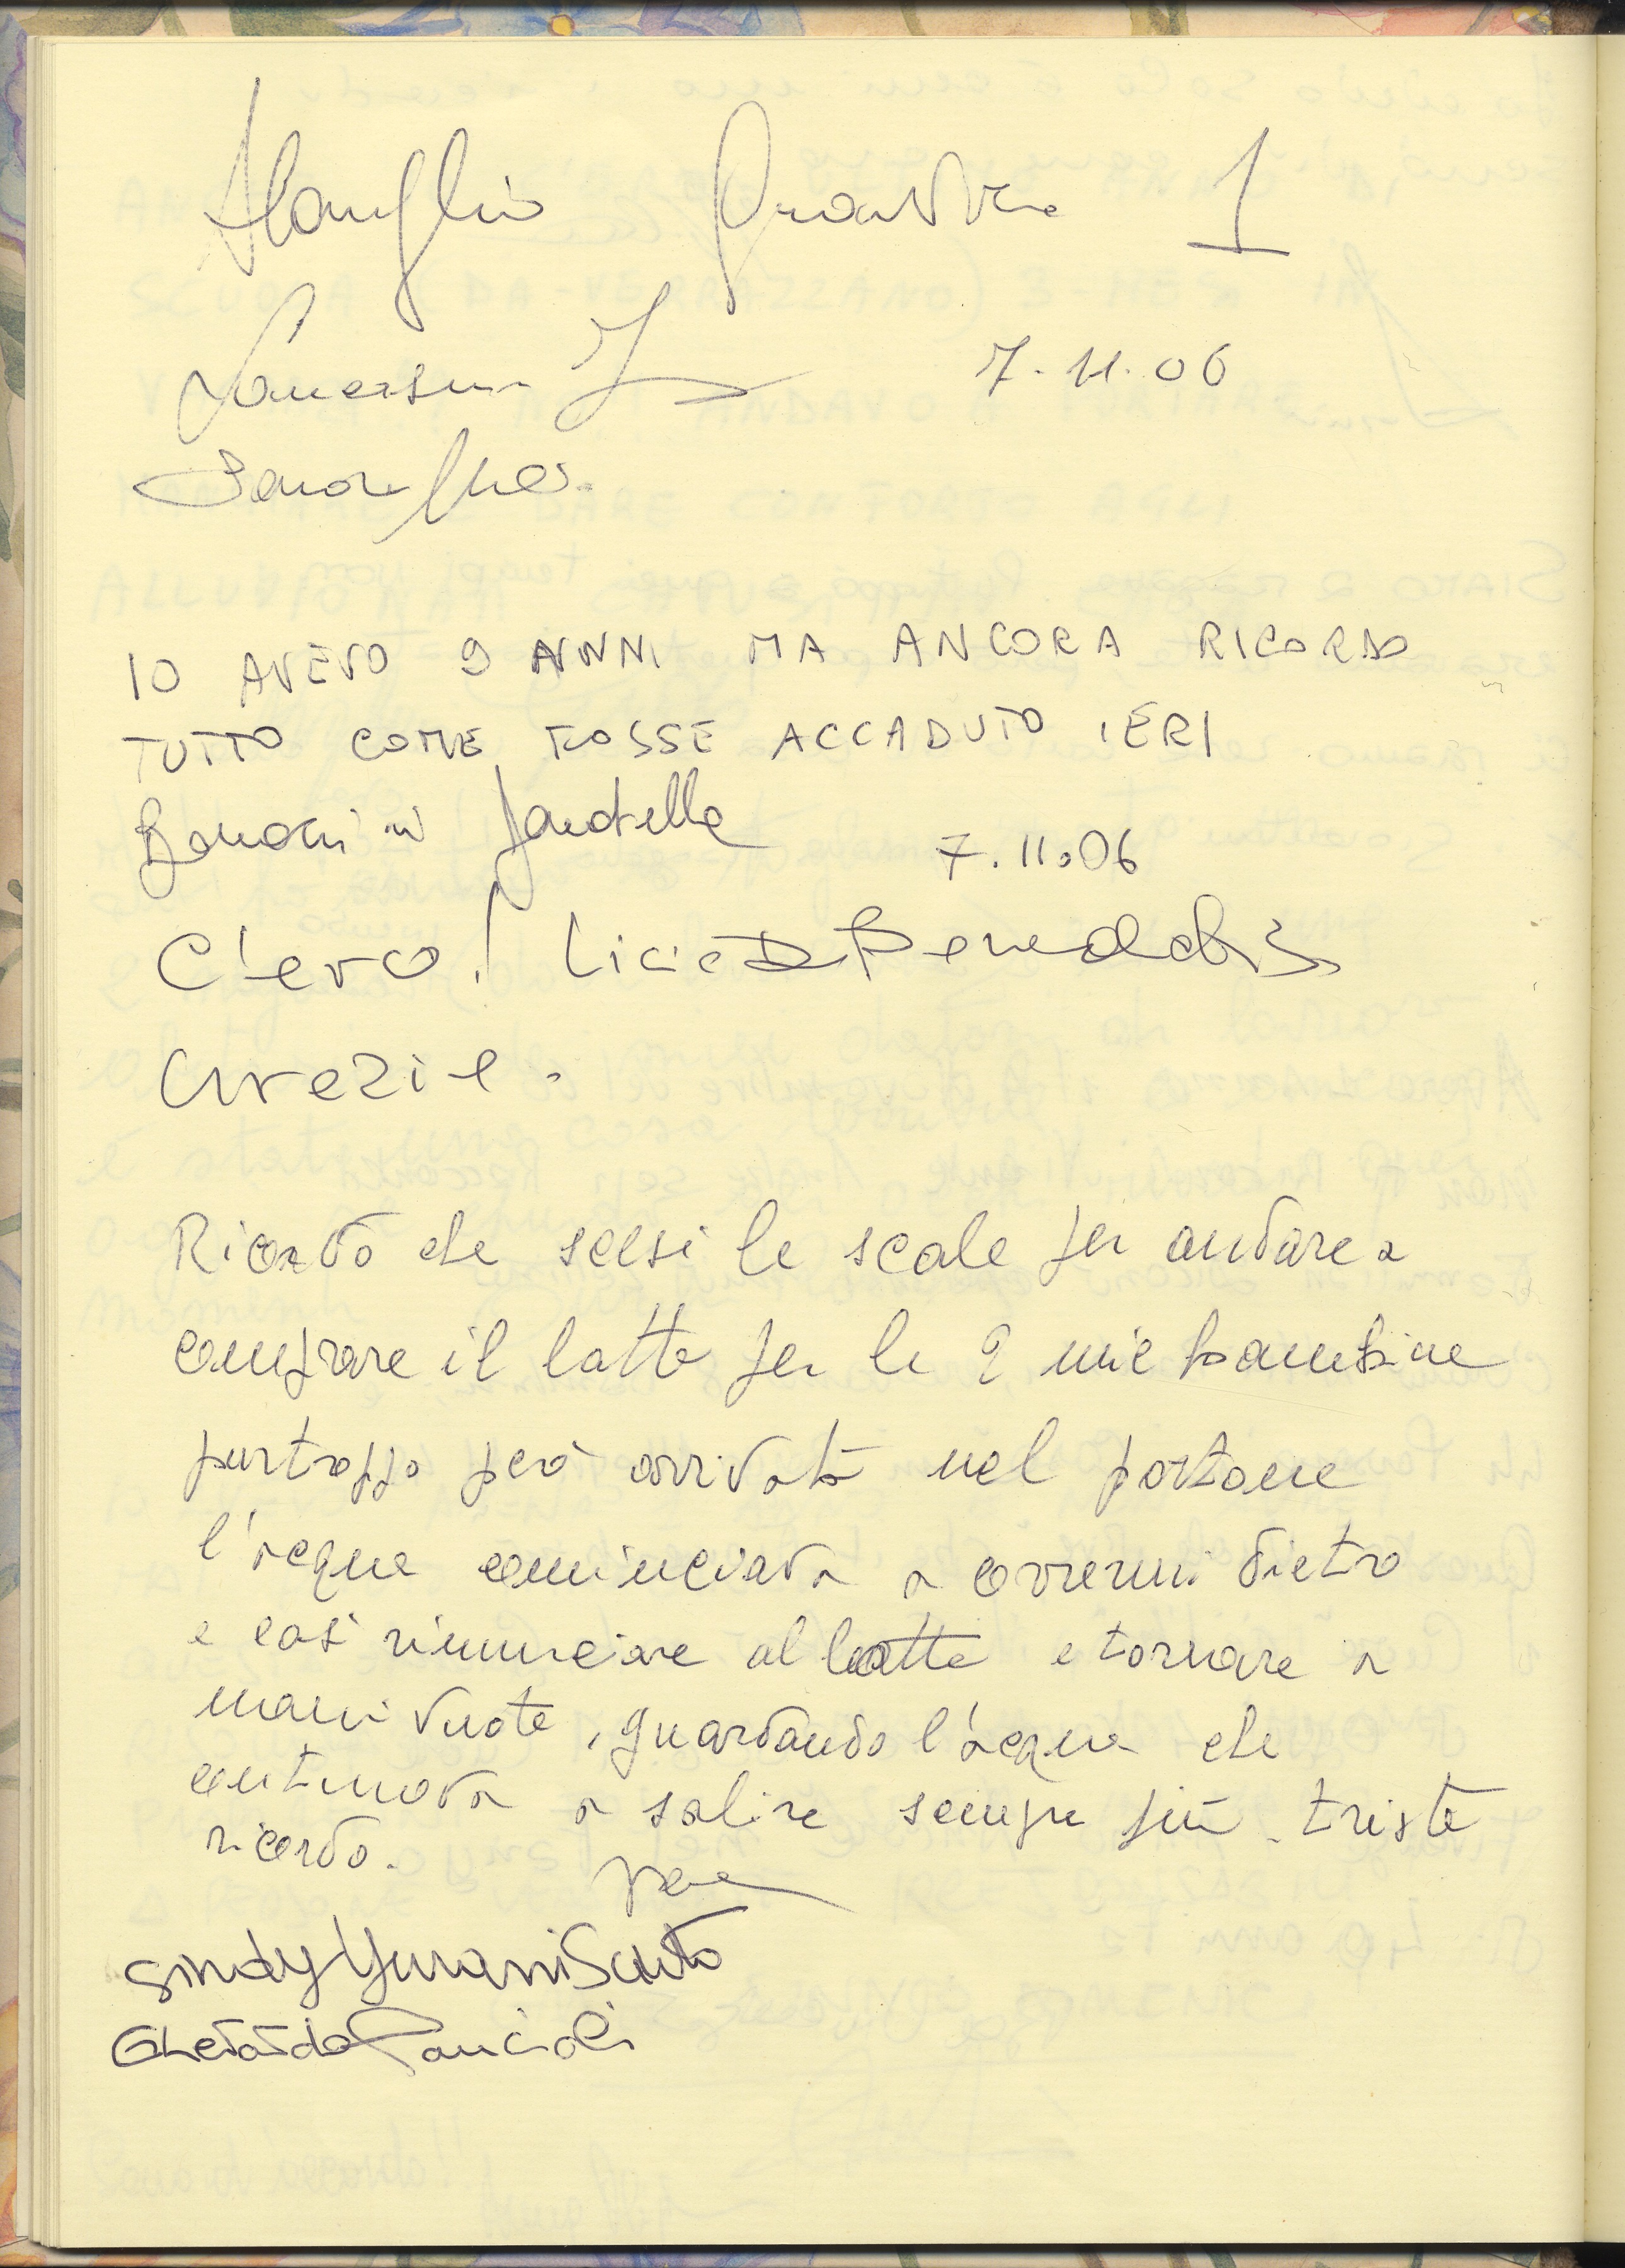 1
7.11.06
IO AVEVO 9 ANNI MA ANCORA RICORDO
TUTTO COME FOSSE ACCADUTO IERI
7.11.06
C'ero! Licia De Benedictis
Grazie.
Ricordo che scesi le scale per andare a
comprare il latte per le 2 mie bambine
purtroppo però arrivata nel portone
l'acqua cominciava a corrermi dietro
e così rinunciare al latte e tornare a
mani vuote, guardando l'acqua che
continuava a salire sempre più. triste
ricordo.
Gherardo Pancioli